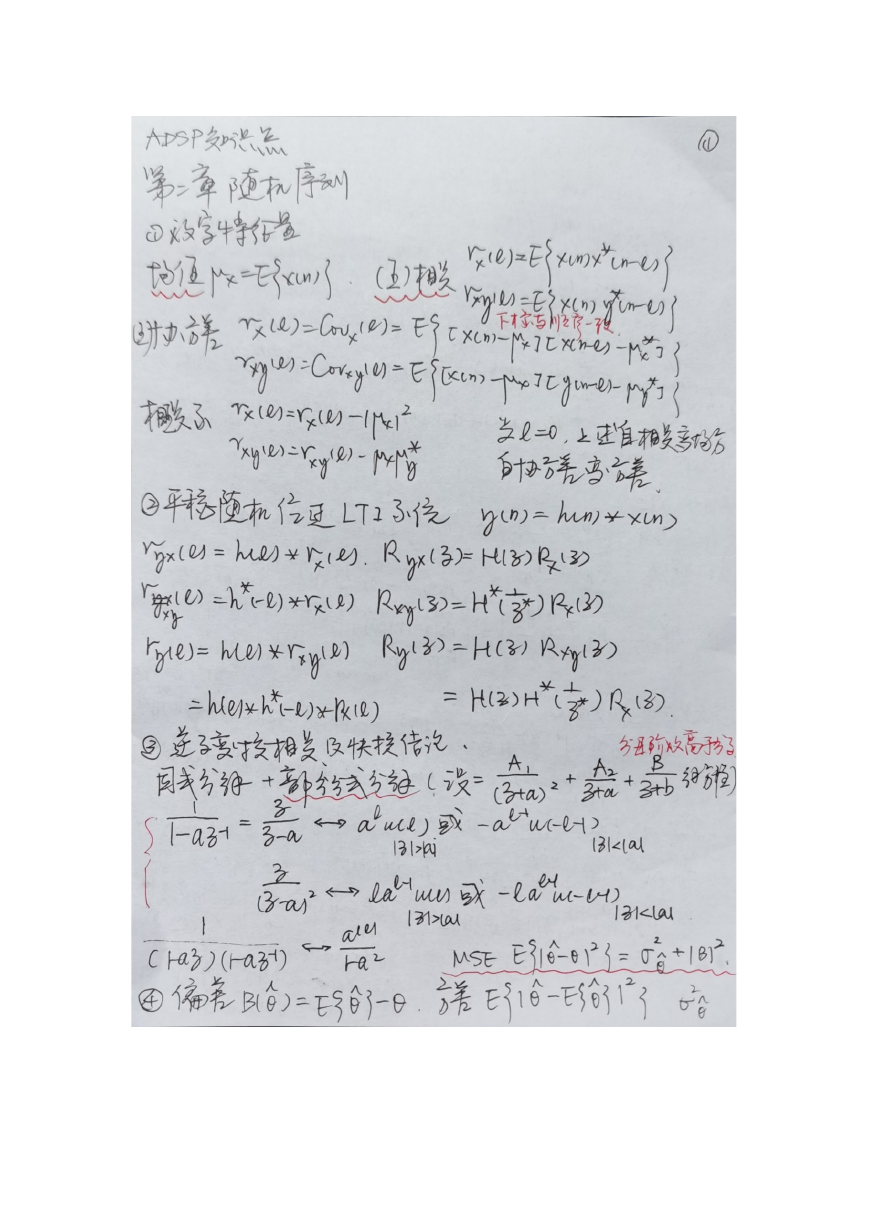 ADSP知识点 ①
第二章 随机序列
①数字特征量
均值 μx=E{x(n)}. (互)相关 rx(l)=E{x(n)x*(n-l)}
rxy(l)=E{x(n)y*(n-l)}
下标与顺序一致.
(互)协方差 γx(l)=Covx(l)=E{[x(n)-μx][x(n-l)-μx*]}
γxy(l)=Covxy(l)=E{[x(n)-μx][y(n-l)-μy*]}
相关系 γx(l)=rx(l)-|μx|²
γxy(l)=rxy(l)-μxμy*
当l=0,上述自相关变均方
自协方差变方差.
②平稳随机信过LTI系统 y(n)=h(n)*x(n)
ryx(l)=h(l)*rx(l). Ryx(z)=H(z)Rx(z)
rxy(l)=h*(-l)*rx(l) Rxy(z)=H*(1/z*)Rx(z)
ry(l)=h(l)*rxy(l) Ry(z)=H(z)Rxy(z)
=h(l)*h*(-l)*rx(l) =H(z)H*(1/z*)Rx(z).
③逆z变换相关及快捷结论. 分母阶数高于分子
因式分解+部分分式分解(设=A₁/(z+a)²+A₂/(z+a)+B/(z+b) 解方程)
1/(1-az⁻¹)=z/(z-a)↔aˡu(l)或-aˡu(-l-1)
|z|>|a| |z|<|a|
z/(z-a)²↔laˡ⁻¹u(l)或-laˡ⁻¹u(-l-1)
|z|>|a| |z|<|a|
1/((1-az)(1-az⁻¹))↔a^|l|/(1-a²) MSE E{|θ̂-θ|²}=σ²θ̂+|B|².
④偏差B(θ̂)=E{θ̂}-θ. 方差E{|θ̂-E{θ̂}|²} σ²θ̂